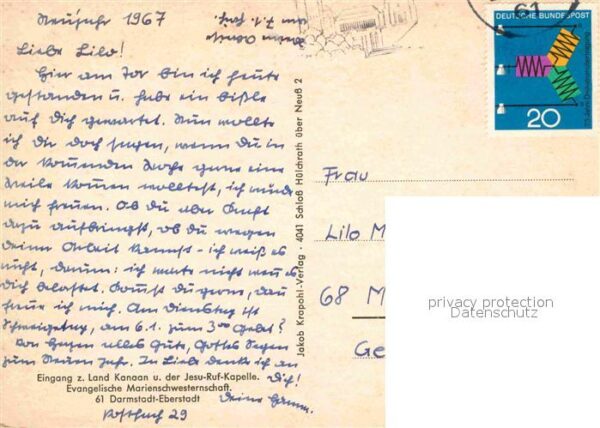 Neujahr 1967
am 7.1. fort.
Liebe Lilo!
Hier am Tor bin ich heute
gestanden u. habe ein bißle
auf Dich gewartet. Nun wollte
ich Dir doch sagen, wenn Du in
der kommenden Woche gerne eine
Weile kommen wolltest, ich würde
mich freuen. Ob Du aber Kraft
dazu aufbringst, ob du wegen
deiner Arbeit kannst - ich weiß es
nicht, darum: ich warte nicht wenn es
Dich belastet. Kommst Du gern, dann
freue ich mich. Am Dienstag ist
am 6.1. zum 3°° Gebet?
Von Herzen alles Gute, Gottes Segen
zum Neuen Jahr. In Liebe denke ich an
Dich!
Deine
Eingang z. Land Kanaan u. der Jesu-Ruf-Kapelle.
Evangelische Marienschwesternschaft.
61 Darmstadt-Eberstadt
Postfach 29
Jakob Krapohl-Verlag · 4041 Schloß Hülchrath über Neuß 2
61
DEUTSCHE BUNDESPOST
20
Frau
Lilo M
68 M
Ge
privacy protection
Datenschutz